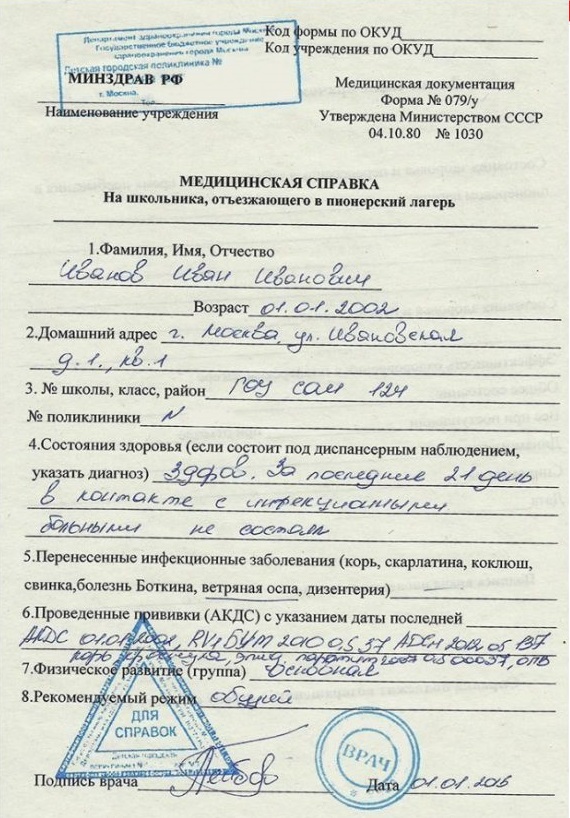 Департамент здравоохранения города Москвы
Государственное бюджетное учреждение
здравоохранения города Москвы
Детская городская поликлиника №
г. Москва.
Код формы по ОКУД
Код учреждения по ОКУД
МИНЗДРАВ РФ
Наименование учреждения
Медицинская документация
Форма № 079/у
Утверждена Министерством СССР
04.10.80 № 1030
МЕДИЦИНСКАЯ СПРАВКА
На школьника, отъезжающего в пионерский лагерь
1.Фамилия, Имя, Отчество
Иванов Иван Иванович
Возраст 01.01.2002
2.Домашний адрес г. Москва, ул. Ивановская
д.1., кв.1
3. № школы, класс, район ГОУ сош 124
№ поликлиники N
4.Состояния здоровья (если состоит под диспансерным наблюдением,
указать диагноз) Здоров. За последние 21 день
в контакте с инфекционными
больными не состоял
5.Перенесенные инфекционные заболевания (корь, скарлатина, коклюш,
свинка,болезнь Боткина, ветряная оспа, дизентерия)
6.Проведенные прививки (АКДС) с указанием даты последней
АКДС
корь
7.Физическое развитие (группа) Основная
8.Рекомендуемый режим общий
ДЛЯ
СПРАВОК
ВРАЧ
Подпись врача
Дата 01.01.2016